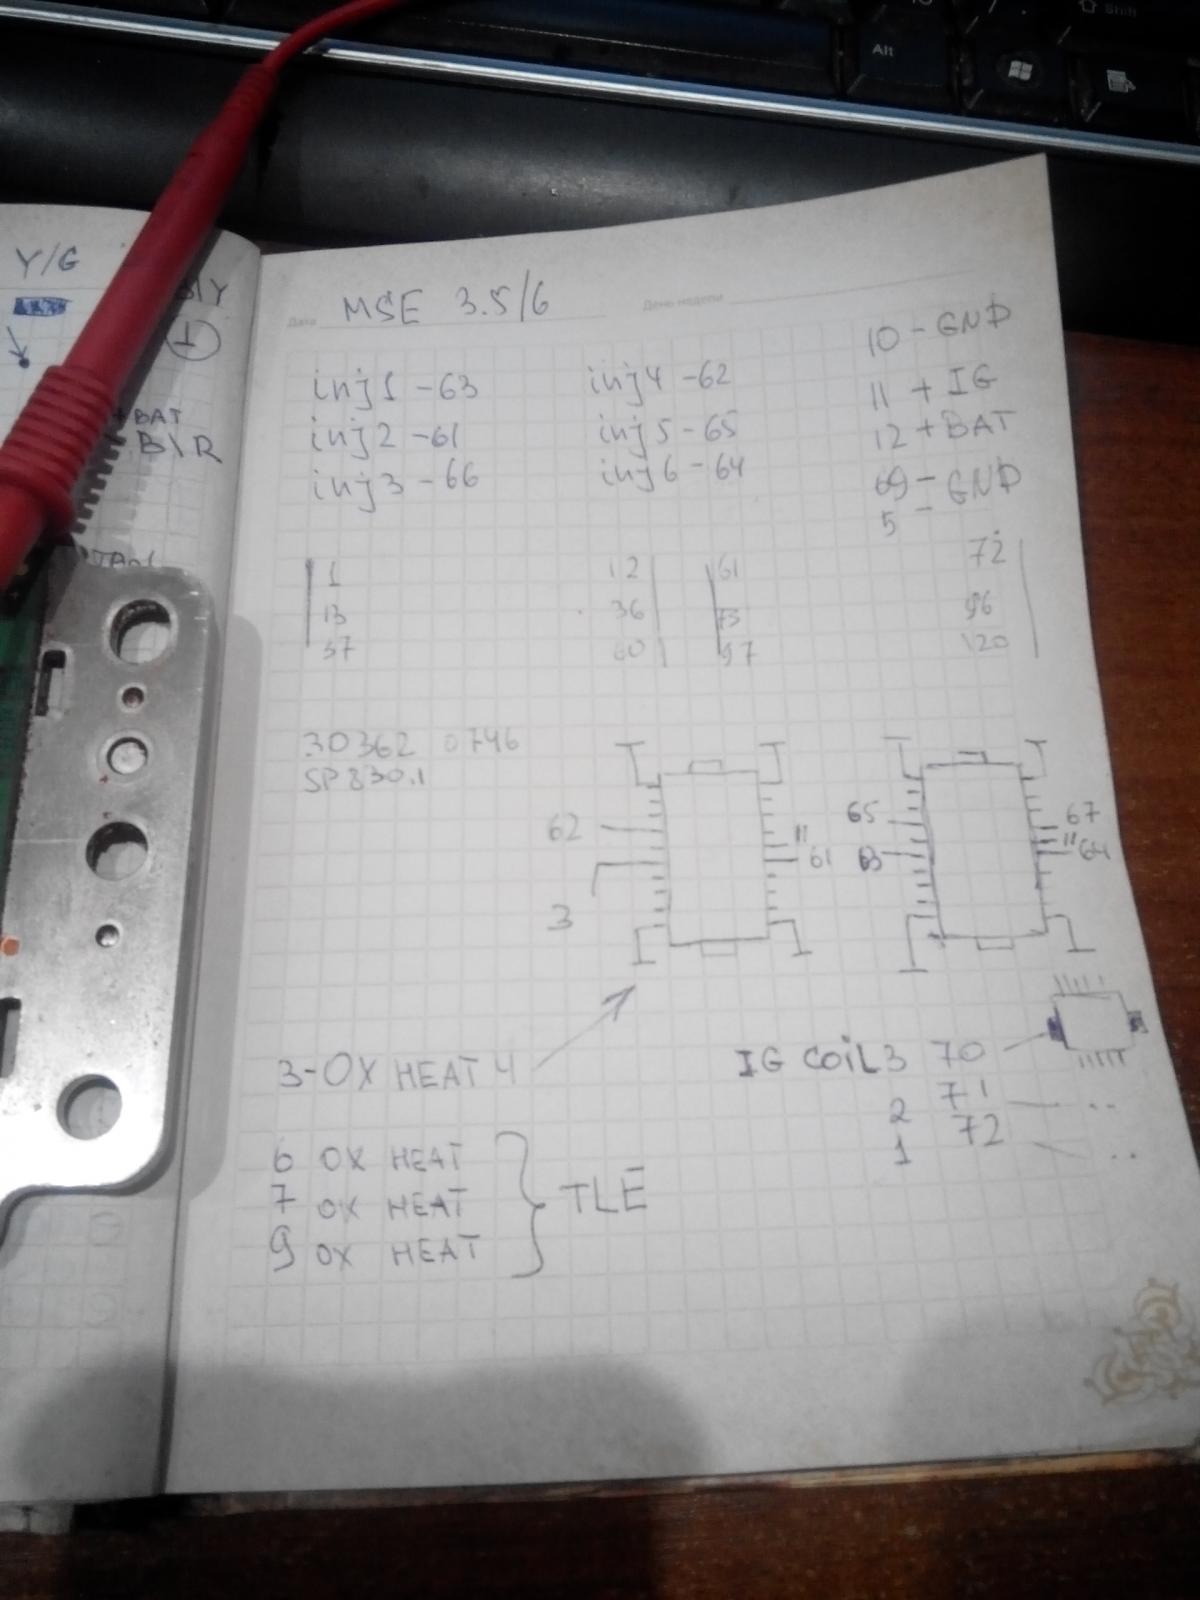 Alt
Shift
Y/G
B\Y
1
+ BAT
B\R
Дата MSE 3.5/6 День недели
inj1 -63 inj4 -62 10 - GND
inj2 -61 inj5 -65 11 + IG
inj3 -66 inj6 -64 12 +BAT
69 - GND
5 -
1 12 61 72
13 36 73 96
37 60 97 120
30362 0746
SP830.1
62 11 61
3
65 67
63 11 64
3-OX HEAT 4
IG COIL3 70
2 71
1 72
6 OX HEAT
7 OX HEAT
9 OX HEAT
TLE